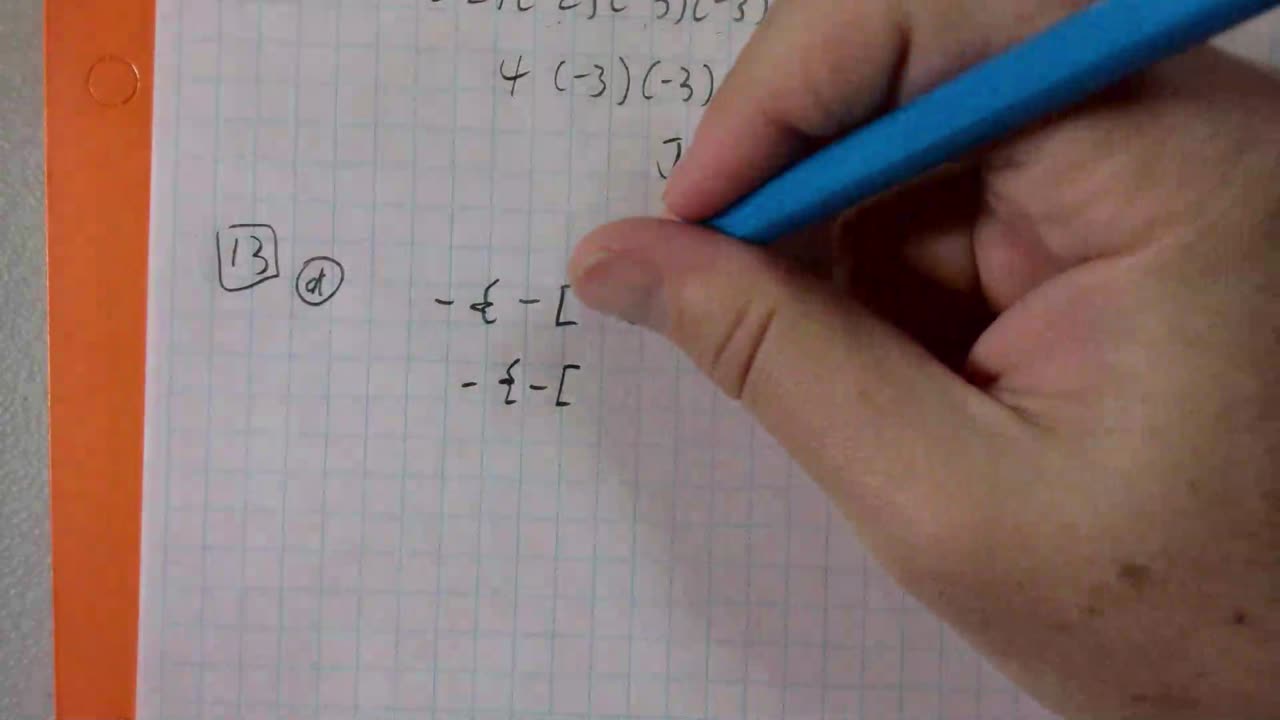 4 (-3)(-3)
13 d -{-[
-{-[